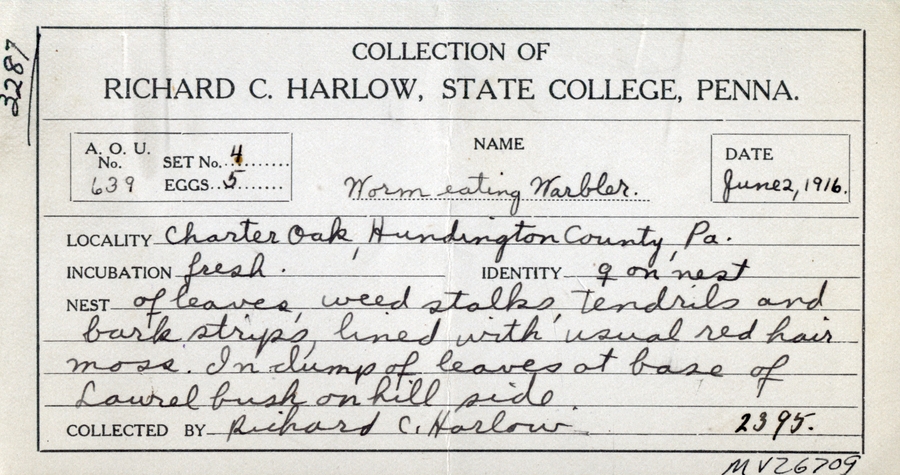 3287
COLLECTION OF
RICHARD C. HARLOW, STATE COLLEGE, PENNA.
A. O. U. No. 639
SET No. 4
EGGS 5
NAME
Worm eating Warbler.
DATE
June 2, 1916.
LOCALITY Charter Oak, Hundington County, Pa.
INCUBATION fresh. IDENTITY ♀ on nest
NEST of leaves, weed stalks, tendrils and
bark strips, lined with usual red hair
moss. In clump of leaves at base of
Laurel bush on hill side.
COLLECTED BY Richard C. Harlow. 2395.
MVZ6709